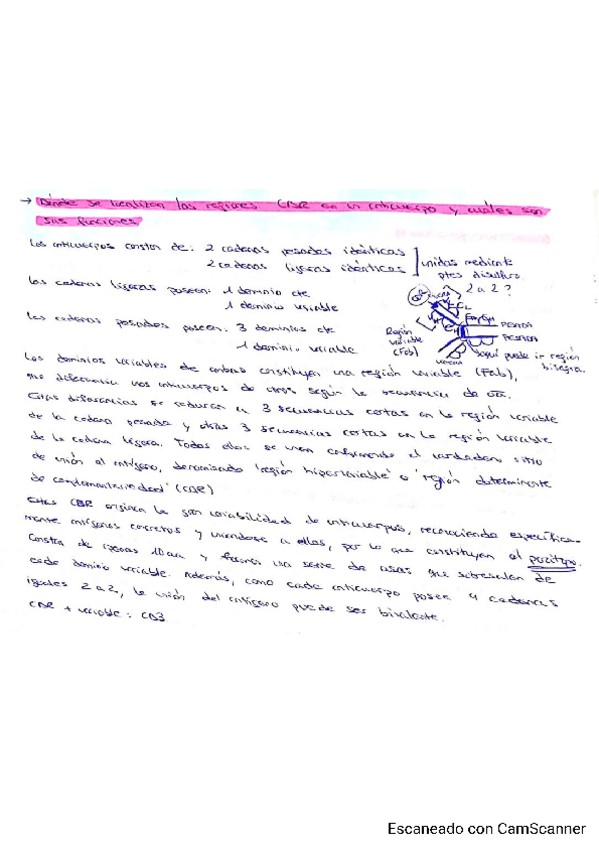 → Dónde se localizan las regiones CDR en un anticuerpo y cuáles son
sus funciones
Los anticuerpos constan de: 2 cadenas pesadas idénticas
2 cadenas ligeras idénticas
unidas mediante
ptes disulfuro
2 a 2?
Las cadenas ligeras poseen: 1 dominio cte
1 dominio variable
Las cadenas pesadas poseen: 3 dominios cte
1 dominio variable
Región
variable
(Fab)
PESADA
PESADA
Aquí puede ir región
bisagra.
Los dominios variables de ambas constituyen una región variable (Fab),
que diferencia unos anticuerpos de otros según la secuencia de
Estas diferencias se reducen a 3 secuencias cortas en la región variable
de la cadena pesada y otras 3 secuencias cortas en la región variable
de la cadena ligera. Todas ellas se unen conformando el verdadero sitio
de unión al antígeno, denominado 'región hipervariable' o 'región determinante
de complementariedad' (CDR)
Estas CDR originan la gran variabilidad de anticuerpos, reconociendo específica-
mente antígenos concretos y uniéndose a ellos, por lo que constituyen el
Constan de apenas 10aa y forman una serie de asas que sobresalen de
cada dominio variable. Además, como cada anticuerpo posee 4 cadenas
iguales 2 a 2, la unión del antígeno puede ser bivalente.
CDR + variable: CD3
Escaneado con CamScanner